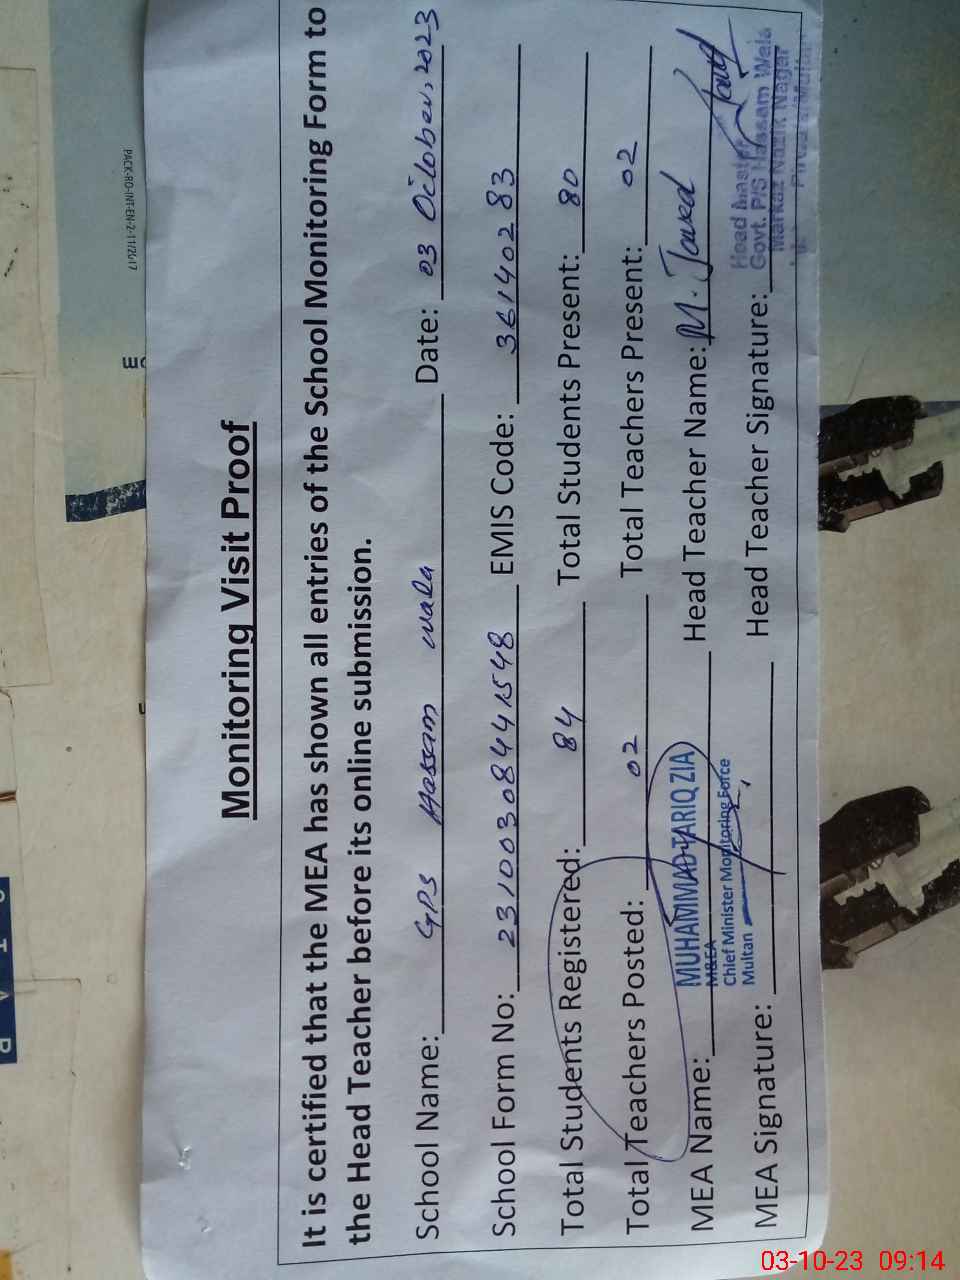 Monitoring Visit Proof
It is certified that the MEA has shown all entries of the School Monitoring Form to
the Head Teacher before its online submission.
School Name: GPS Hassam wala Date: 03 October, 2023
School Form No: 231003084441548 EMIS Code: 36140283
Total Students Registered: 84 Total Students Present: 80
Total Teachers Posted: 02 Total Teachers Present: 02
MEA Name: MUHAMMAD TARIQ ZIA Head Teacher Name: M. Javed
M&EA
Chief Minister Monitoring Force
Multan
MEA Signature: Head Teacher Signature:
Head Master
Govt. P/S Hassam Wala
Markaz Nagar
PACK-RO-INT-EN-2-11/2017
03-10-23 09:14